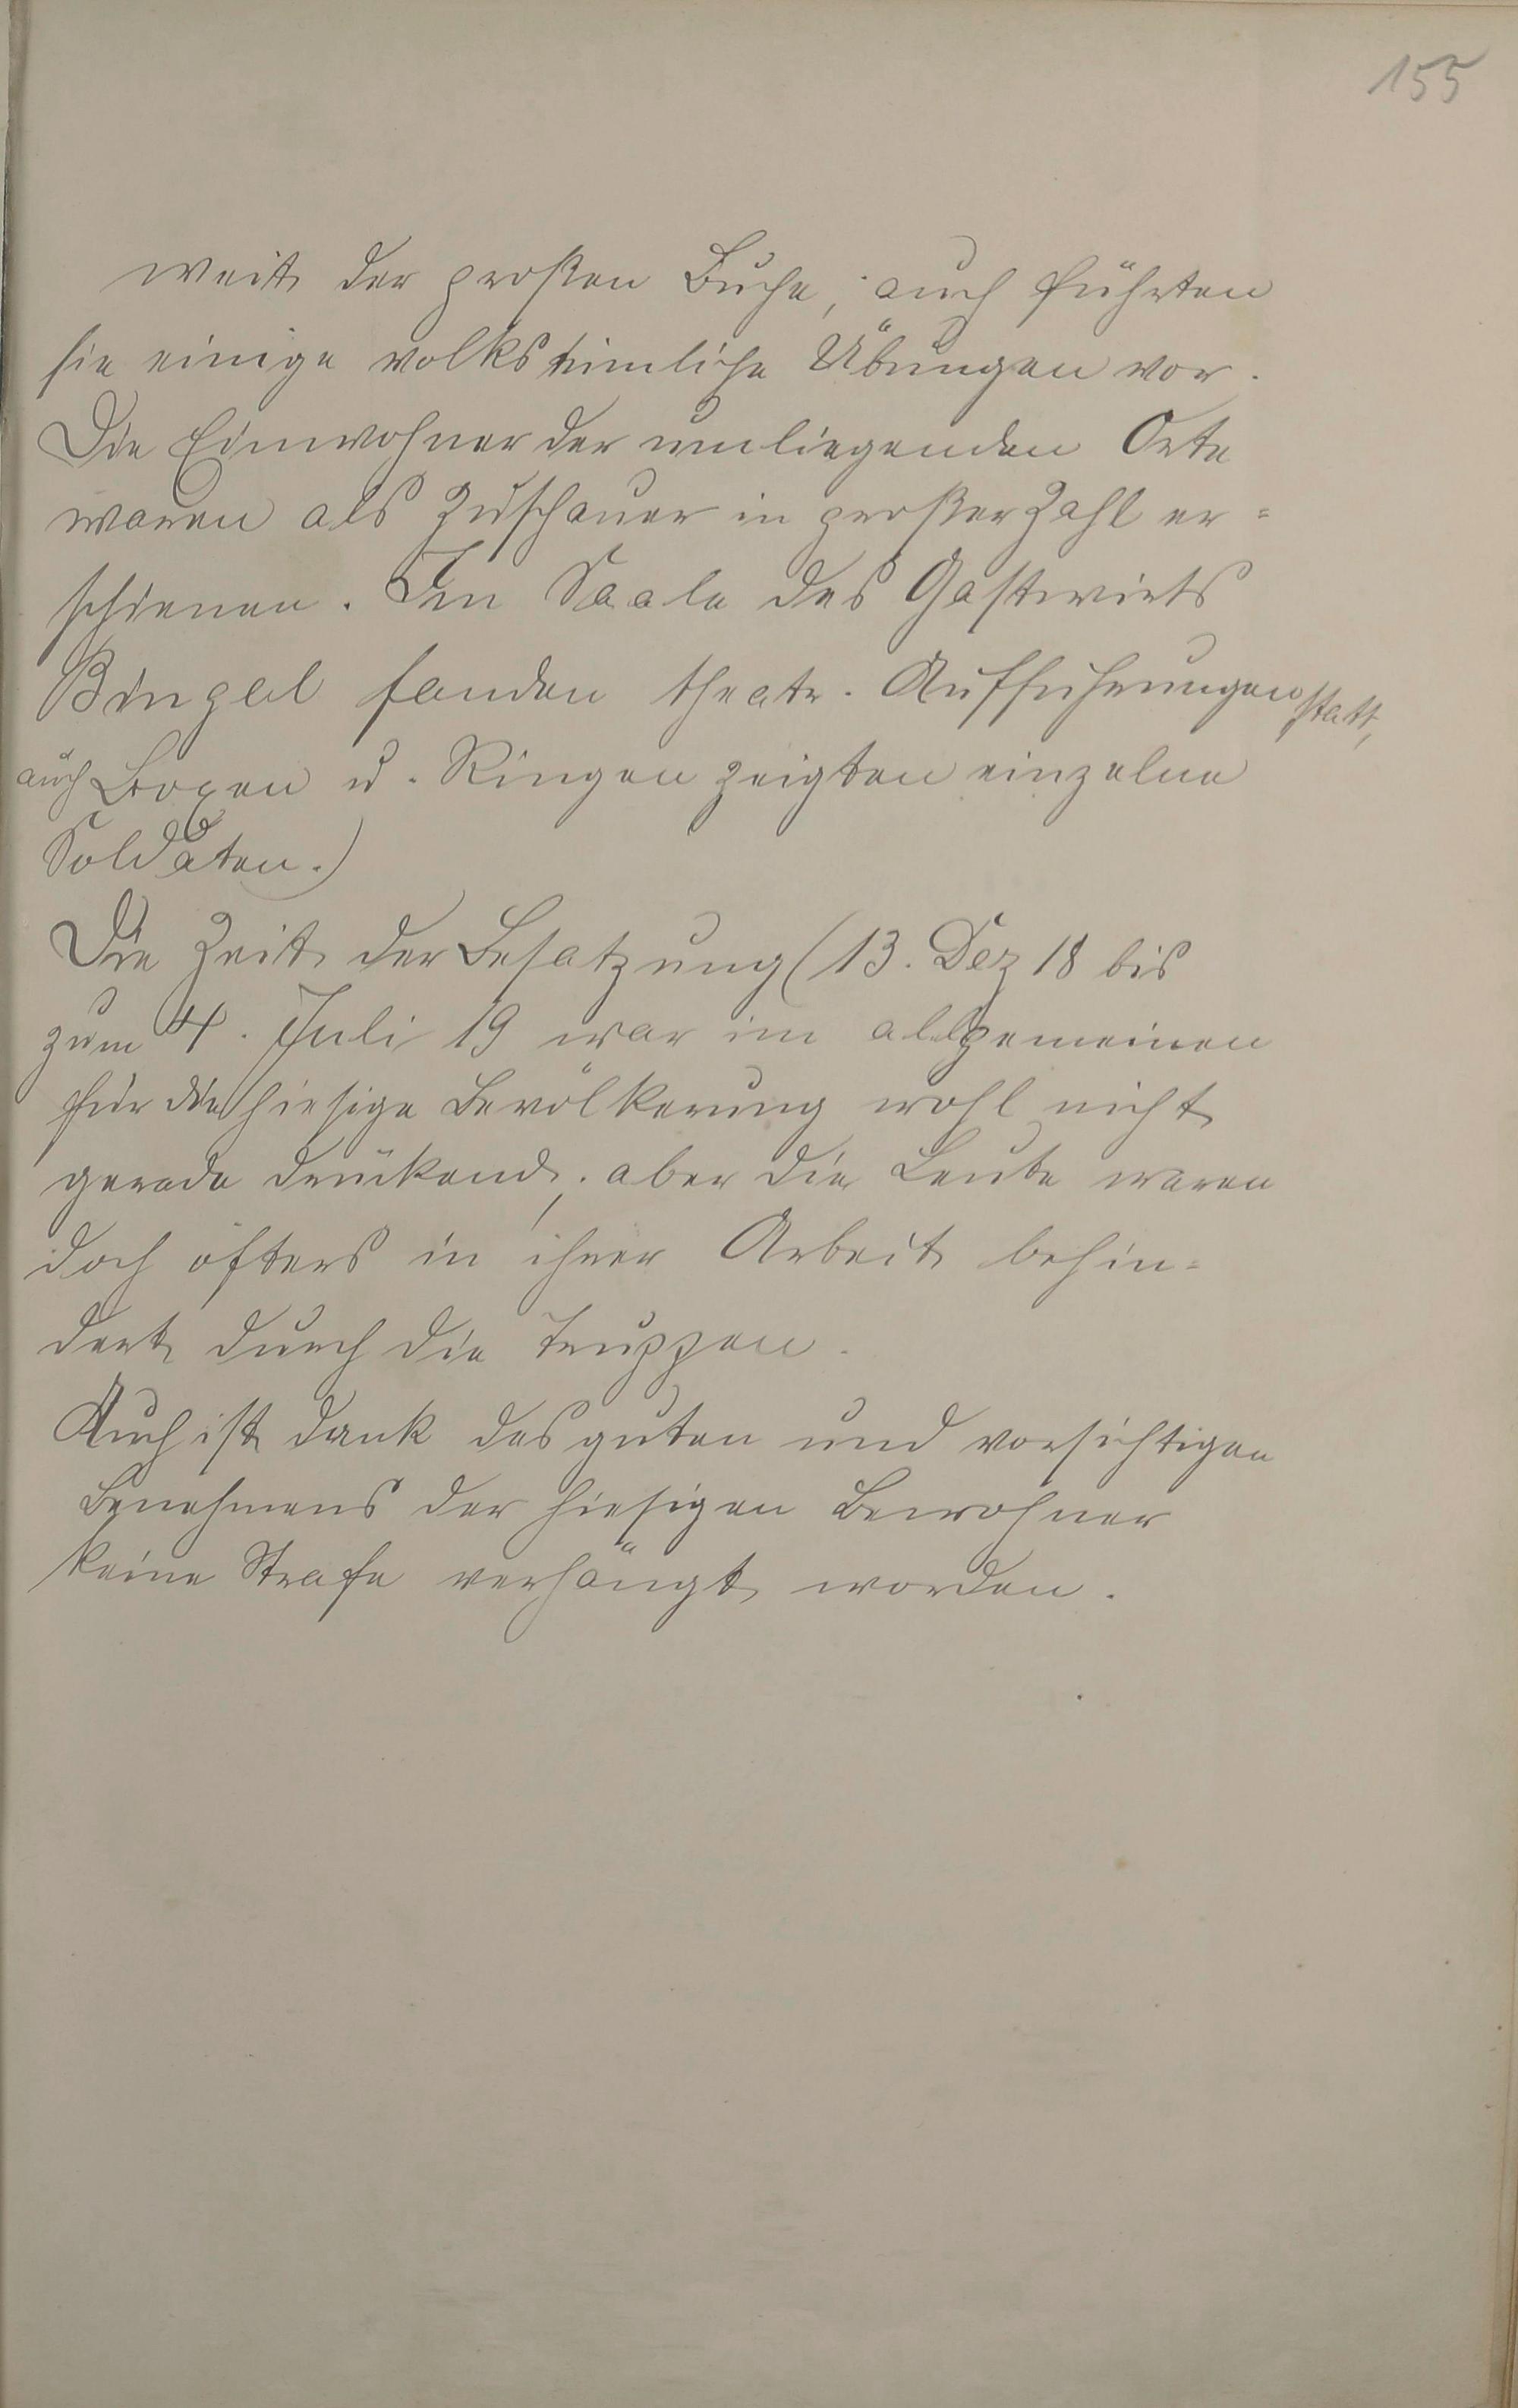 155
weit der großen Buche, auch führten
sie einige volkstümliche Übungen vor.
Die Einwohner der umliegenden Orte
waren als Zuschauer in großer Zahl er=
schienen. Im Saale des Gastwirts
Bingel fanden theatr. Aufführungen statt,
auch Boxen u. Ringen zeigten einzelne
Soldaten.)
Die Zeit der Besatzung (13. Dez 18 bis
zum 4. Juli 19 war im allgemeinen
für die hiesige Bevölkerung wohl nicht
gerade drückend; aber die Leute waren
doch öfters in ihrer Arbeit behin=
dert durch die Truppen.
Auch ist dank des guten und vorsichtigen
Benehmens der hiesigen Bewohner
keine Strafe verhängt worden.